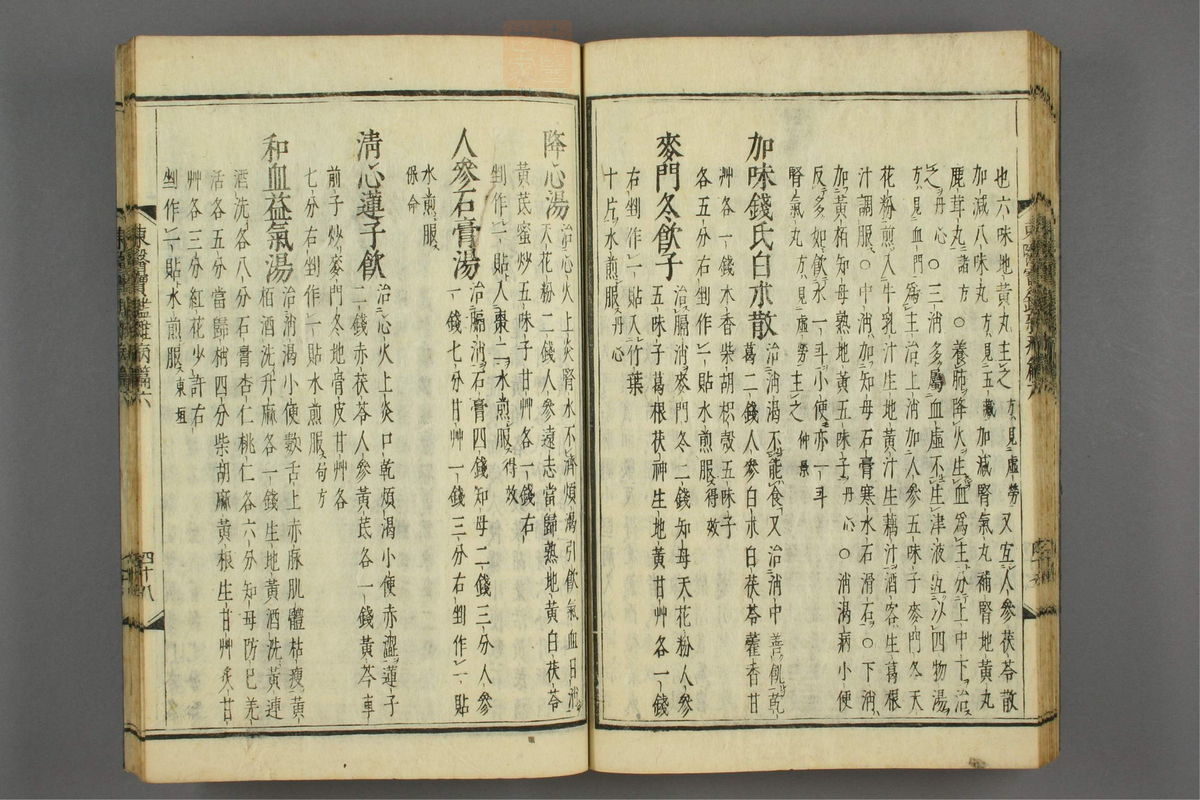 也六味地黃丸主之方見虛勞又宜人參茯苓散
加減八味丸方見五藏加減腎氣丸補腎地黃丸
鹿茸丸諸方○養肺降火生血爲主分上中下治
之丹心○三消多屬血虛不生津液宜以四物湯
方見血門爲主治上消加人參五味子麥門冬天
花粉煎入牛乳汁生地黃汁生藕汁酒客生葛根
汁調服中消加知母石膏寒水石滑石○下消
加黃栢知母熟地黃五味子丹心○消渴病小便
反多如飮水一斗小便亦一斗
腎氣丸方見虛勞主之仲景
加味錢氏白朮散治消渴不能食又治消中善飢乾
葛二錢人參白朮白茯苓藿香甘
艸各一錢木香柴胡枳殼五味子
各五分右剉作一貼水煎服得效
麥門冬飮子治膈消麥門冬二錢知母天花粉人參
五味子葛根茯神生地黃甘艸各一錢
右剉作一貼入竹葉
十片水煎服丹心
降心湯治心火上炎腎水不濟煩渴引飮氣血日消
天花粉二錢人參遠志當歸熟地黃白茯苓
黃芪蜜炒五味子甘艸各一錢右
剉作一貼入棗二水煎服得效
人參石膏湯治膈消石膏四錢知母二錢三分人參
一錢七分甘艸一錢三分右剉作一貼
水煎服
保命
淸心蓮子飮治心火上炎口乾煩渴小便赤澁蓮子
二錢赤茯苓人參黃芪各一錢黃芩車
前子炒麥門冬地骨皮甘艸各
七分右剉作一貼水煎服局方
和血益氣湯治消渴小便數舌上赤脉肌體枯瘦黃
栢酒洗升麻各一錢生地黃酒洗黃連
酒洗各八分石膏杏仁桃仁各六分知母防已羌
活各五分當歸梢四分柴胡麻黃根生甘艸炙甘
艸各三分紅花少許右
剉作一貼水煎服東垣
東醫寶鑑雜病篇六
四十八